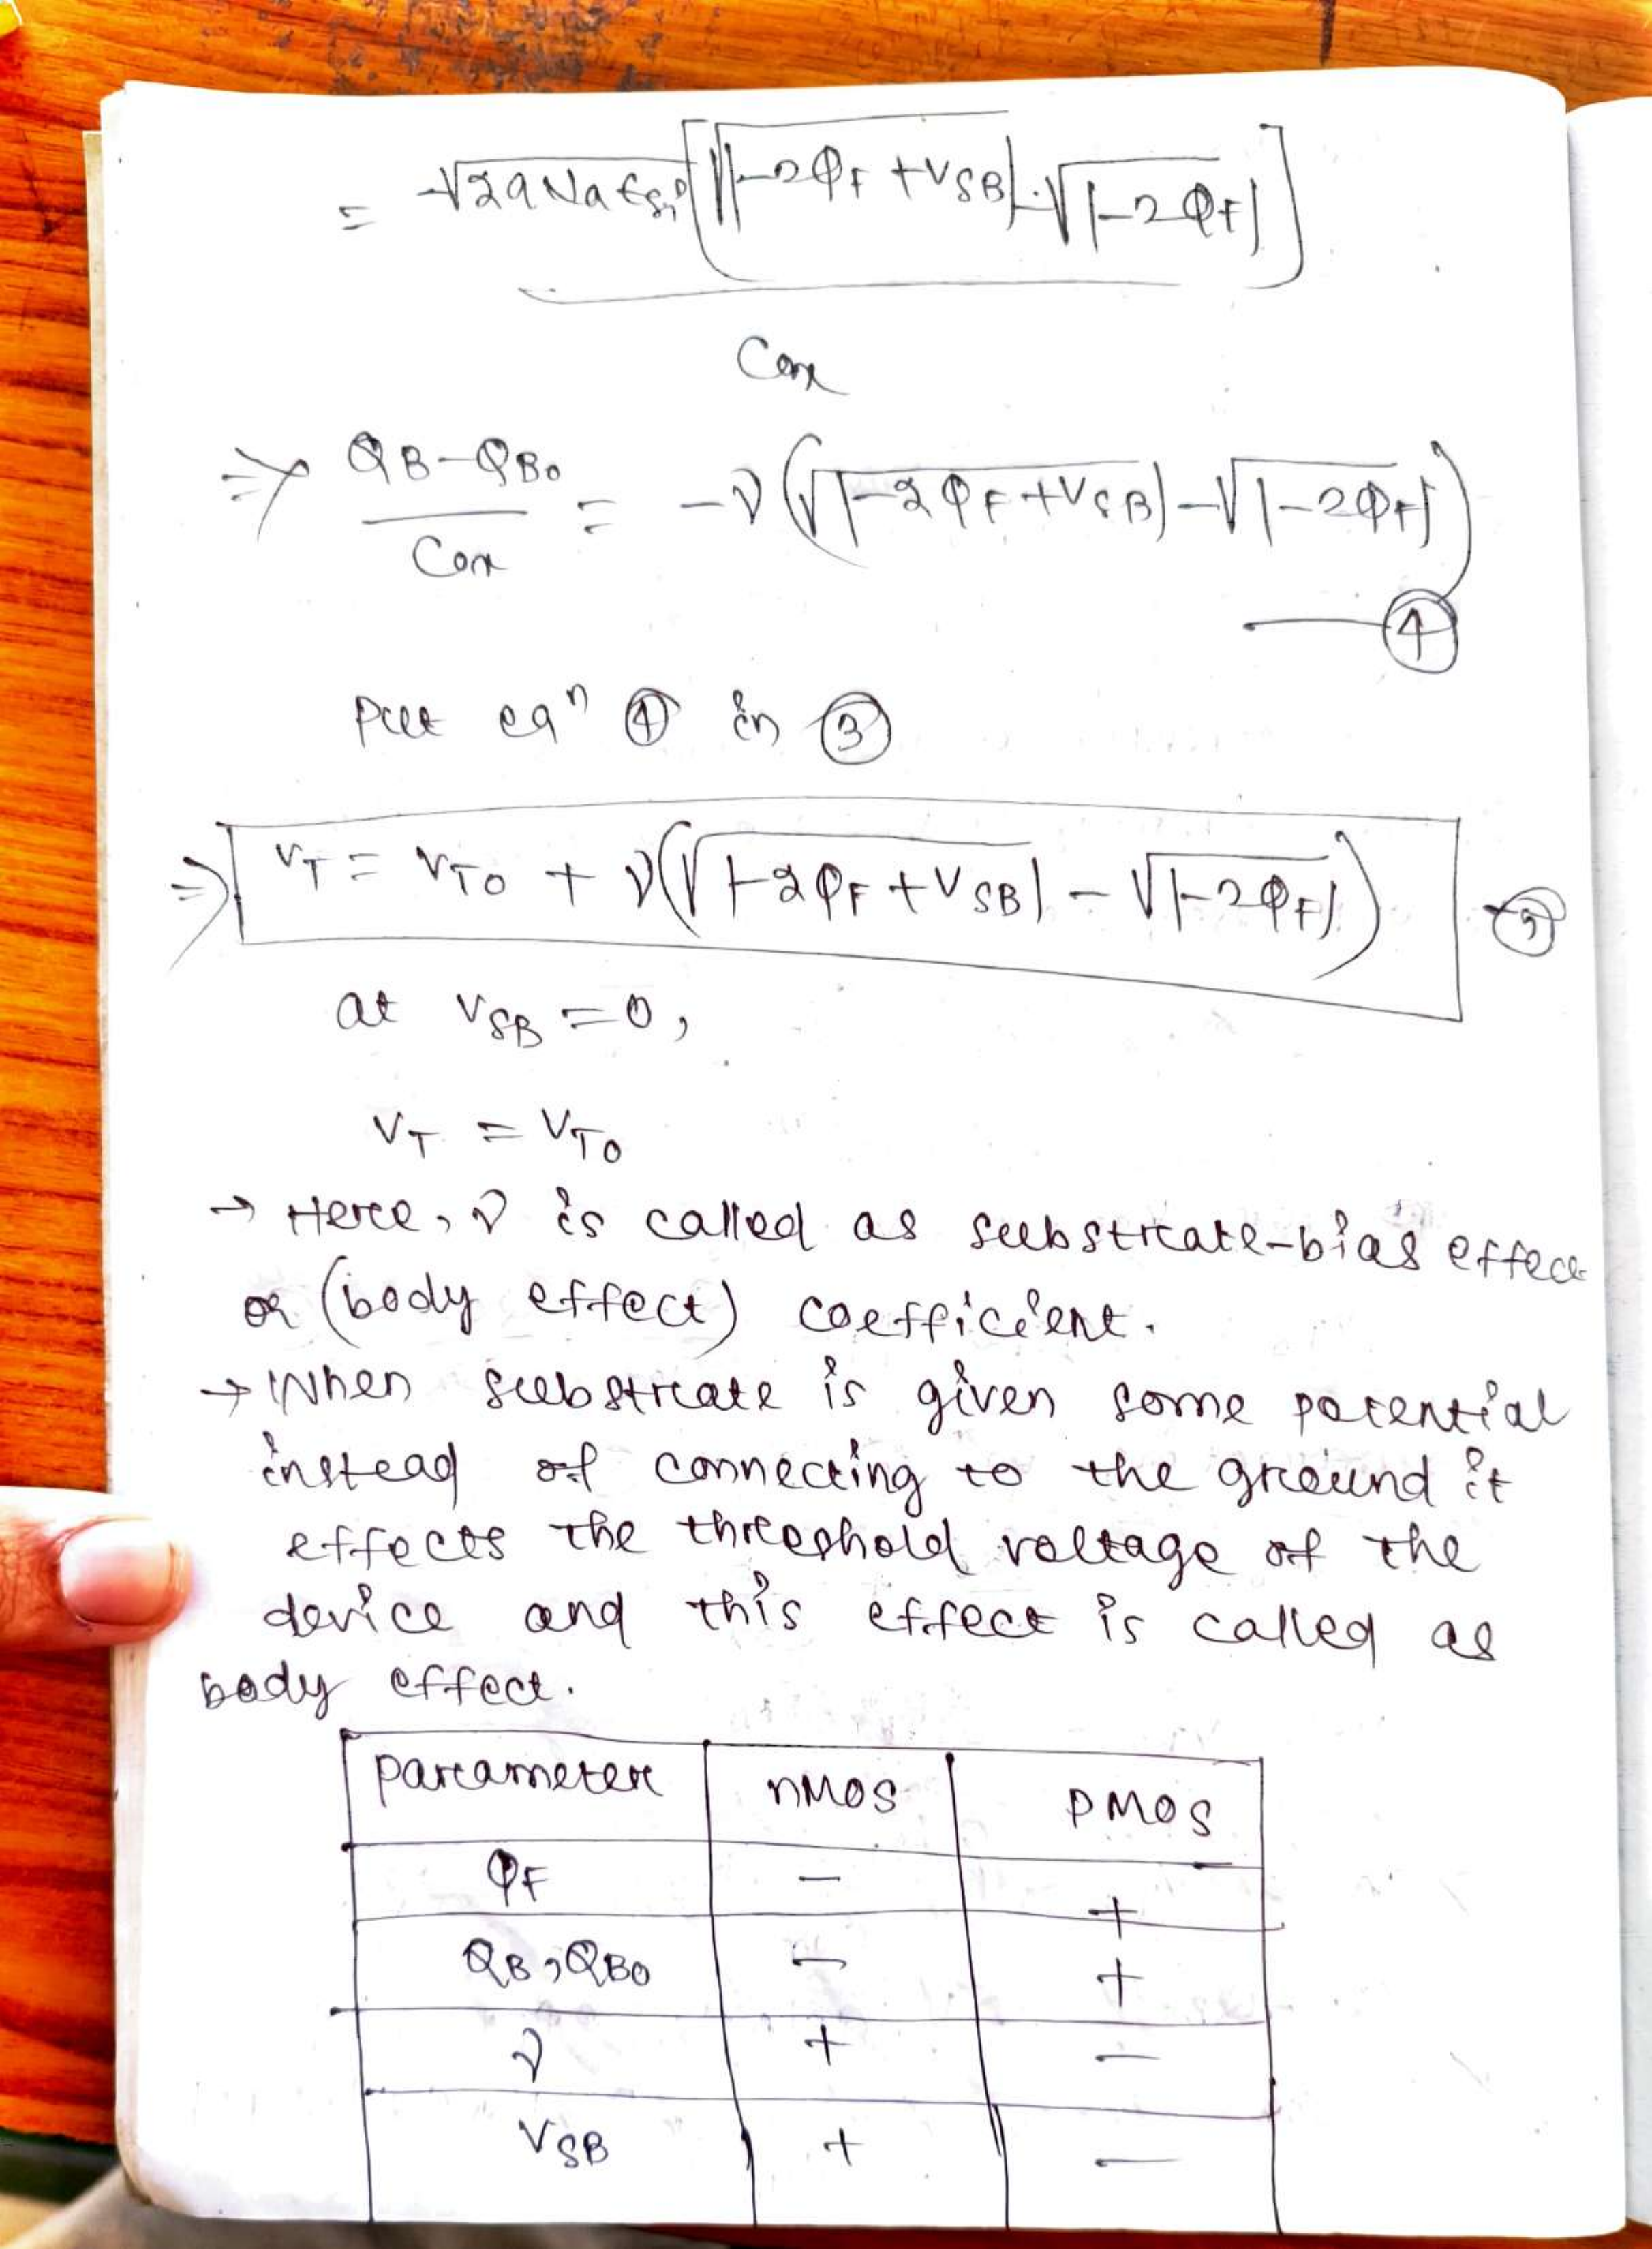 = -√2qNaεsi [√|-2φF + VSB| - √|-2φF|]
Cox
⇒ QB - QB0 / Cox = -γ(√|-2φF + VSB| - √|-2φF|)
— ④
Put eqⁿ ④ in ③
⇒ VT = VT0 + γ(√|-2φF + VSB| - √|-2φF|) - ⑤
at VSB = 0,
VT = VT0
→ Here, γ is called as substrate-bias effect
or (body effect) coefficient.
→ When substrate is given some potential
instead of connecting to the ground it
effects the threshold voltage of the
device and this effect is called as
body effect.
parameter nMOS PMOS
φF - +
QB, QB0 - +
γ + -
VSB + -